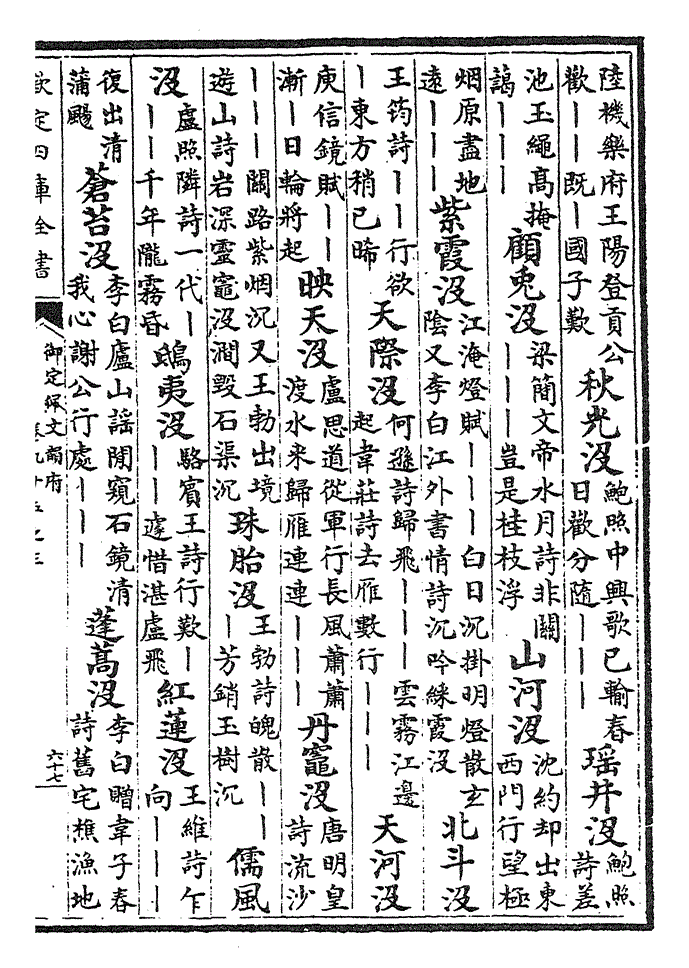 陸機樂府王陽登貢公歡——既—國子歎秋光沒鮑照中興歌已輸春日歡分隨———瑶井沒鮑照詩差
池玉繩髙掩藹———顧兎沒梁簡文帝水月詩非關———豈是桂枝浮山河沒沈約却出東西門行望極
烟原盡地逺———紫霞沒江淹燈賦———白日沉掛明燈散玄陰又李白江外書情詩沉吟綵霞沒北斗沒
王筠詩——行欲—東方稍已晞天際沒何遜詩歸飛———雲霧江邊起韋莊詩去雁數行———天河沒
庾信鏡賦——漸—日輪將起映天沒盧思道從軍行長風蕭蕭渡水来歸雁連連———丹竈沒唐明皇詩流沙
———關路紫烟沉又王勃出境遊山詩岩深靈竈沒澗毁石渠沉珠胎沒王勃詩魄散———芳銷玉樹沉儒風
沒盧照隣詩一代———千年隴霧昏鴟夷沒駱賓王詩行歎———遽惜湛盧飛紅蓮沒王維詩乍向———
復出清蒲颺蒼苔沒李白廬山謡閒窺石鏡清我心謝公行處———蓬蒿沒李白贈韋子春詩舊宅樵漁地
欽定四庫全書
御定佩文韻府
卷九十五之三
六十七